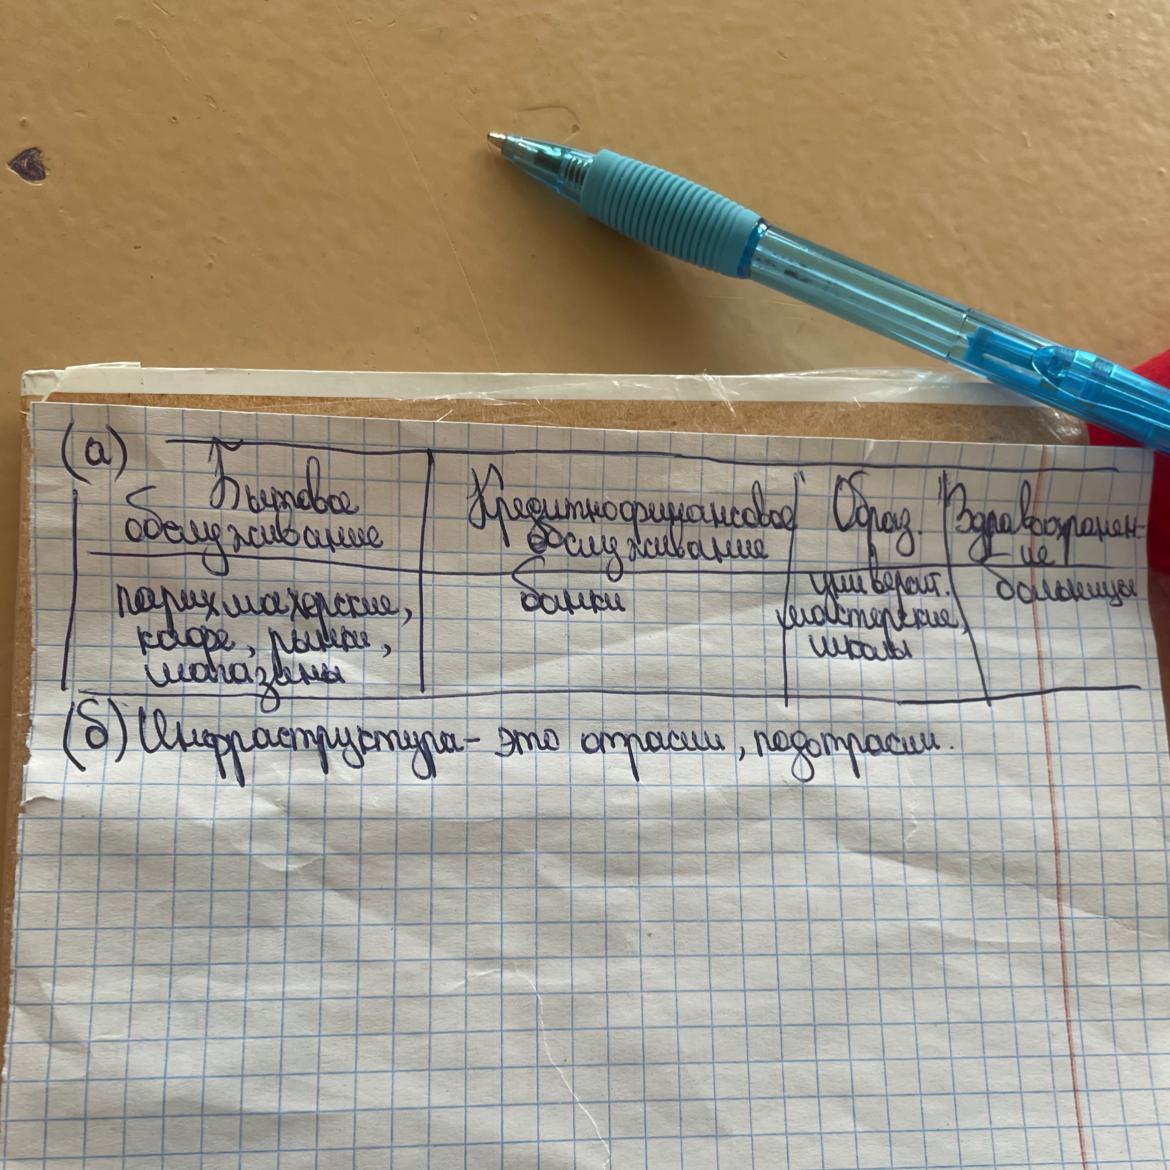 (а)
Бытовое
обслуживание
Кредитнофинансовое
обслуживание
Образ.
Здравоохранен-
ие
парихмахерские,
кафе, рынки,
магазины
банки
университ.
мастерские,
школы
больницы
(б) Инфраструктура - это отрасли, подотрасли.